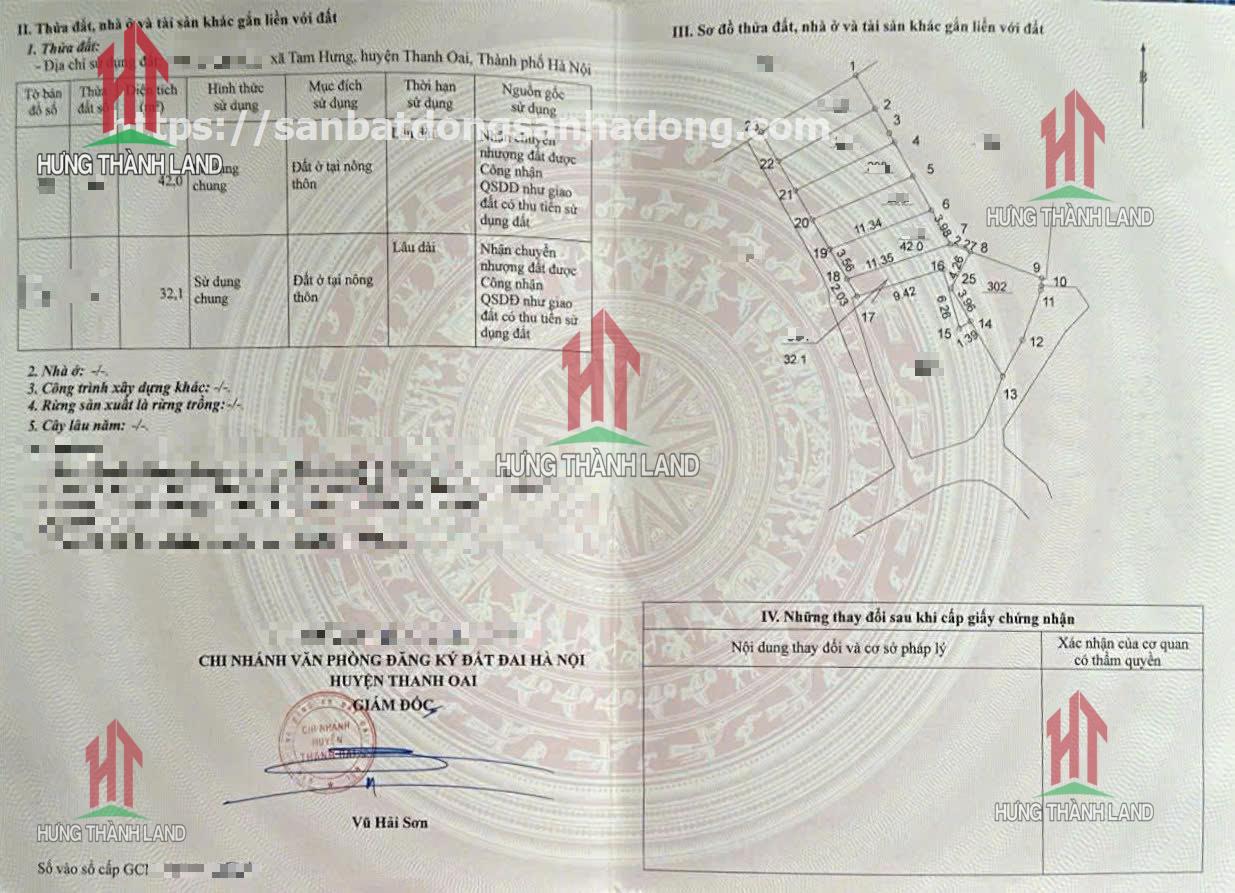 II. Thửa đất, nhà ở và tài sản khác gắn liền với đất
1. Thửa đất:
- Địa chỉ sử dụng đất xã Tam Hưng, huyện Thanh Oai, Thành phố Hà Nội
Tờ bản đồ số
Thửa đất số
Diện tích (m²)
Hình thức sử dụng
Mục đích sử dụng
Thời hạn sử dụng
Nguồn gốc sử dụng
42,0
chung
Đất ở tại nông thôn
Nhận chuyển
nhượng đất được
Công nhận
QSDĐ như giao
đất có thu tiền sử
dụng đất
32,1
Sử dụng chung
Đất ở tại nông thôn
Lâu dài
Nhận chuyển
nhượng đất được
Công nhận
QSDĐ như giao
đất có thu tiền sử
dụng đất
2. Nhà ở: -/-.
3. Công trình xây dựng khác: -/-.
4. Rừng sản xuất là rừng trồng: -/-.
5. Cây lâu năm: -/-.
CHI NHÁNH VĂN PHÒNG ĐĂNG KÝ ĐẤT ĐAI HÀ NỘI
HUYỆN THANH OAI
GIÁM ĐỐC
CHI NHÁNH
HUYỆN
THANH OAI
Vũ Hải Sơn
Số vào sổ cấp GC
III. Sơ đồ thửa đất, nhà ở và tài sản khác gắn liền với đất
B
1
2
3
4
5
6
7
8
9
10
11
12
13
14
15
16
17
18
19
20
21
22
25
11.34
3.98
2.27
42.0
3.56
11.35
4.26
2.03
9.42
302
3.96
6.26
1.39
32.1
IV. Những thay đổi sau khi cấp giấy chứng nhận
Nội dung thay đổi và cơ sở pháp lý
Xác nhận của cơ quan có thẩm quyền
https://sanbatdongsanhadong.com
HƯNG THÀNH LAND
HƯNG THÀNH LAND
HƯNG THÀNH LAND
HƯNG THÀNH LAND
HƯNG THÀNH LAND